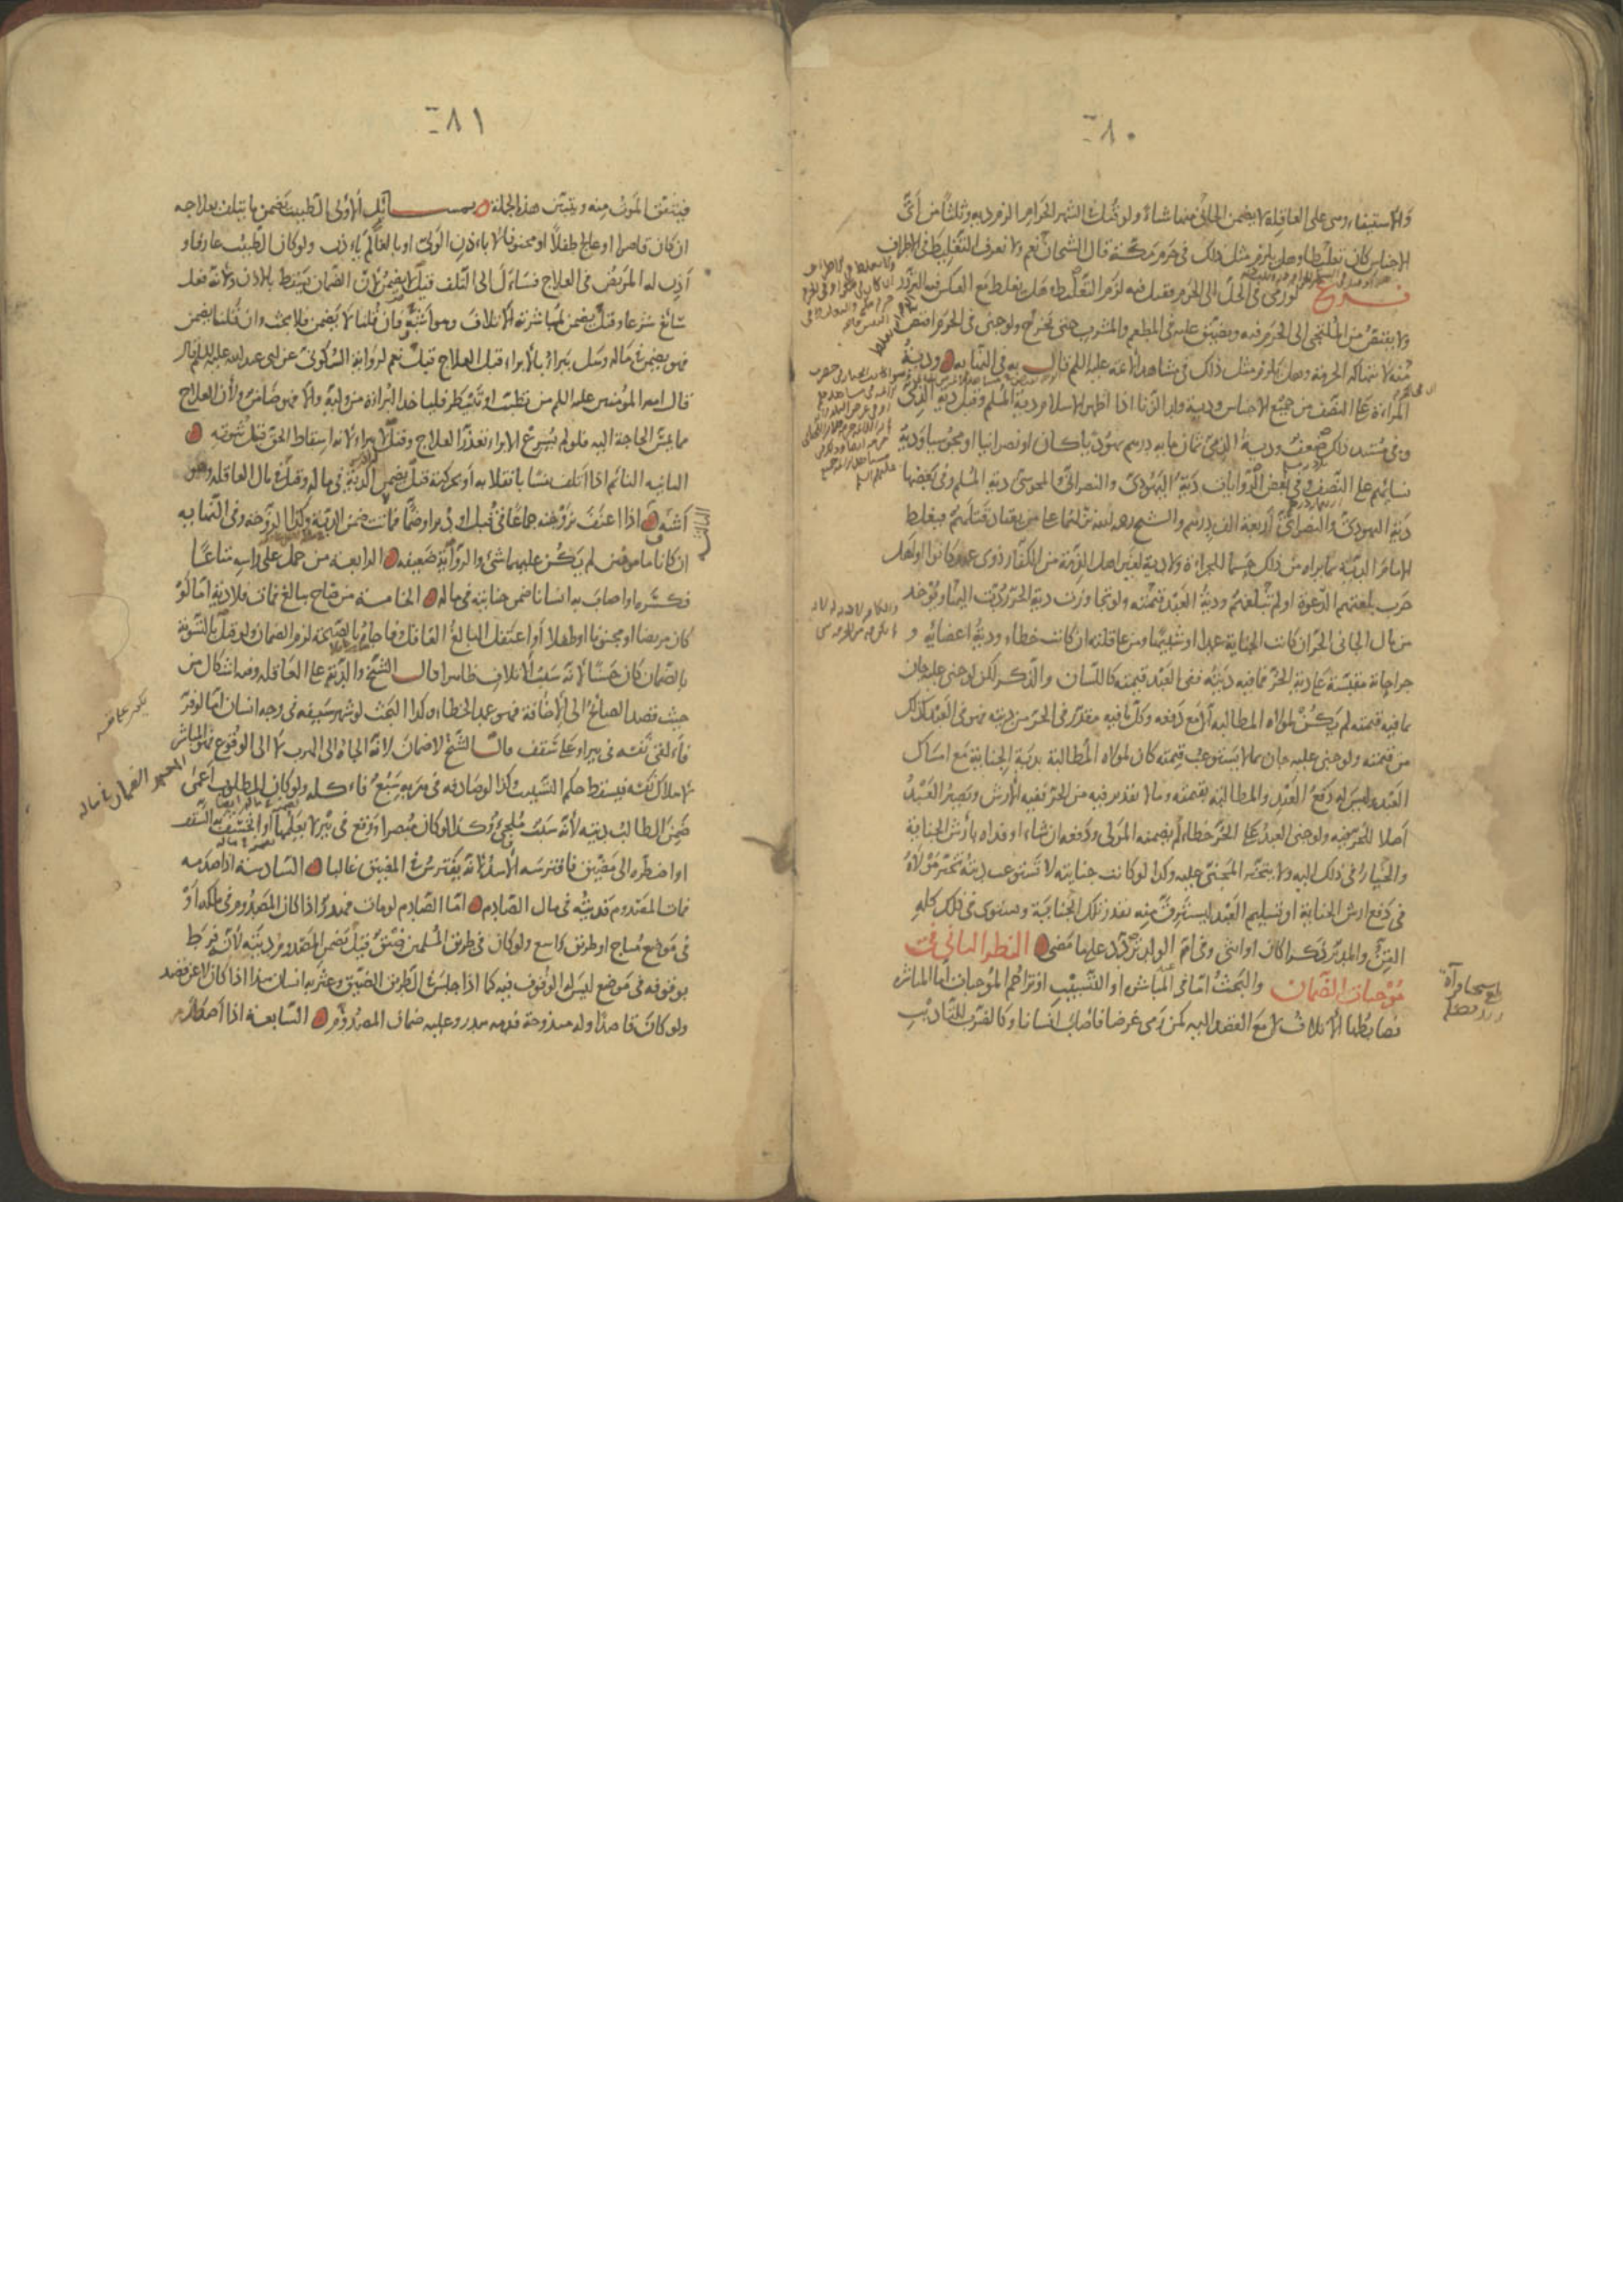 ٢٨٠
والاستيفاء وهي على العاقلة لا يضمن الجاني منها شيئا ولو قتل في الشهر الحرام الزم دية وثلثا من اي
الاجناس كان تغليظا وهل يلزم مثل ذلك في حرم مكة قال الشيخان نعم ولا نعرف التغليظ في الاطراف
فروع لو رمى في الحل الى الحرم فقتل فيه لزم التغليظ وهل يغلظ مع العكس فيه التردد
ولا يقتص من الملتجي الى الحرم فيه ويضيق عليه في المطعم والمشرب حتى يخرج ولو جنى في الحرم اقتص
منه لانتهاكه الحرمة وهل يلزم مثل ذلك في مشاهد الائمة عليهم السلم قال به في النهاية ودية
المراءة على النصف من جميع الاجناس ودية ولد الزنا اذا اظهر الاسلام دية المسلم وقيل دية الذمي
وفي مستند ذلك ضعف ودية الذمي ثمان ماية درهم يهوديا كان او نصرانيا او مجوسيا ودية
نسائهم على النصف وفي بعض الروايات دية اليهودي والنصراني والمجوسي دية المسلم وفي بعضها
دية اليهودي والنصراني اربعة الف درهم والشيخ رحمه الله نزلهما على من يعتاد قتلهم فيغلظ
الامام الدية بما يراه من ذلك حسما للجراءة ولا دية لغير اهل الذمة من الكفار ذوي عهد كانوا او اهل
حرب بلغتهم الدعوة او لم تبلغهم ودية العبد قيمته ولو تجاوزت دية الحر ردت اليها ويؤخذ
من مال الجاني الحر ان كانت الجناية عمدا او شبيها ومن عاقلته ان كانت خطاء ودية اعضائه و
جراحاته مقيسة على دية الحر فما فيه ديته ففي العبد قيمته كاللسان والذكر لكن لو جنى عليه جان
بما فيه قيمته لم يكن لمولاه المطالبة الا مع دفعه وكل ما فيه مقدر في الحر من ديته فهو في العبد كذلك
من قيمته ولو جنى عليه جان بما لا يستوعب قيمته كان لمولاه المطالبة بدية الجناية مع امساك
العبد وليس له دفع العبد والمطالبة بقيمته وما لا تقدير فيه من الحر ففيه الارش ويصير العبد
اصلا للحر فيه ولو جنى العبد على الحر خطاء لم يضمنه المولى ودفعه ان شاء او فداه بارش الجناية
والخيار في ذلك اليه ولا يتخير المجني عليه وكذا لو كانت جنايته لا تستوعب ديته تخير مولاه
في دفع ارش الجناية او تسليم العبد ليسترق منه بقدر تلك الجناية ويستوي في ذلك كله
القن والمدبر ذكرا كان او انثى وفي ام الولد تردد على ما مضى النظر الثاني في
موجبات الضمان والبحث اما في المباشر او التسبيب او تزاحم الموجبات اما المباشرة
فضابطها الاتلاف لا مع القصد اليه كمن رمى غرضا فاصاب انسانا وكالضرب للتاديب
٢٨١
فيتفق الموت منه ويتبين هذه الجملة بمسائل الاولى الطبيب يضمن ما يتلف بعلاجه
ان كان قاصرا او عالج طفلا او مجنونا لا باذن الولي او بالغا لم ياذن ولو كان الطبيب عارفا و
اذن له المريض في العلاج فسأل الى التلف قيل لا يضمن لان الضمان يسقط بالاذن ولانه فعل
سائغ شرعا وقيل يضمن لمباشرته الاتلاف وهو اشبه فان قلنا لا يضمن فلا بحث وان قلنا يضمن
فهو يضمن في ماله وهل يبراء بالابراء قبل العلاج قيل نعم لرواية السكوني عن ابي عبد الله عليه السلم قال
قال امير المؤمنين عليه السلم من تطبب او تبيطر فلياخذ البراءة من وليه والا فهو ضامن ولان العلاج
مما يمس الحاجة اليه فلو لم يشرع الابراء تعذر العلاج وقيل لا يبراء لانه اسقاط الحق قبل ثبوته
الثانية النائم اذا اتلف نفسا بانقلابه او بحركته قيل يضمن الدية في ماله وقيل في مال العاقلة وهو
اشبه الثالثة اذا اعنف بزوجته جماعا في قبل او دبر او ضما فماتت ضمن الدية وكذا الزوجة وفي النهاية
ان كانا مامونين لم يكن عليهما شئ والرواية ضعيفه الرابعة من حمل على راسه متاعا
فكسره او اصاب به انسانا ضمن جنايته في ماله الخامسة من صاح ببالغ فمات فلا دية اما لو
كان مريضا او مجنونا او طفلا او اغتفل البالغ العاقل وفاجاه بالصيحة لزم الضمان ولو قيل بالتسوية
بالضمان كان حسنا لانه سبب الاتلاف ظاهرا وقال الشيخ والدية على العاقلة وفيه اشكال من
حيث قصد الصائح الى الاخافة فهو عمد الخطاء وكذا البحث لو شهر سيفه في وجه انسان اما لو فر
فالقى نفسه في بئر او على سقف قال الشيخ لا ضمان لانه الجاه الى الهرب لا الى الوقوع فهو المباشر
لاهلاك نفسه فيسقط حكم التسبيب وكذا لو صادفه في هربه سبع فاكله ولو كان المطلوب اعمى
ضمن الطالب ديته لانه سبب ملجئ وكذا لو كان مبصرا ووقع في بئر لا يعلمها او انخسف به السقف
او اضطره الى مضيق فافترسه الاسد لانه يفترس في المضيق غالبا السادسة اذا صدمه
فمات المصدوم فديته في مال الصادم اما الصادم لو مات فهدر اذا كان المصدوم في ملكه او
في موضع مباح او طريق واسع ولو كان في طريق المسلمين ضيق قيل يضمن المصدوم ديته لانه فرط
بوقوفه في موضع ليس له الوقوف فيه كما اذا جلس في الطريق الضيق وعثر به انسان هذا اذا كان لا عن قصد
ولو كان قاصدا وله مندوحة فدمه هدر وعليه ضمان المصدوم السابعة اذا اصطدم